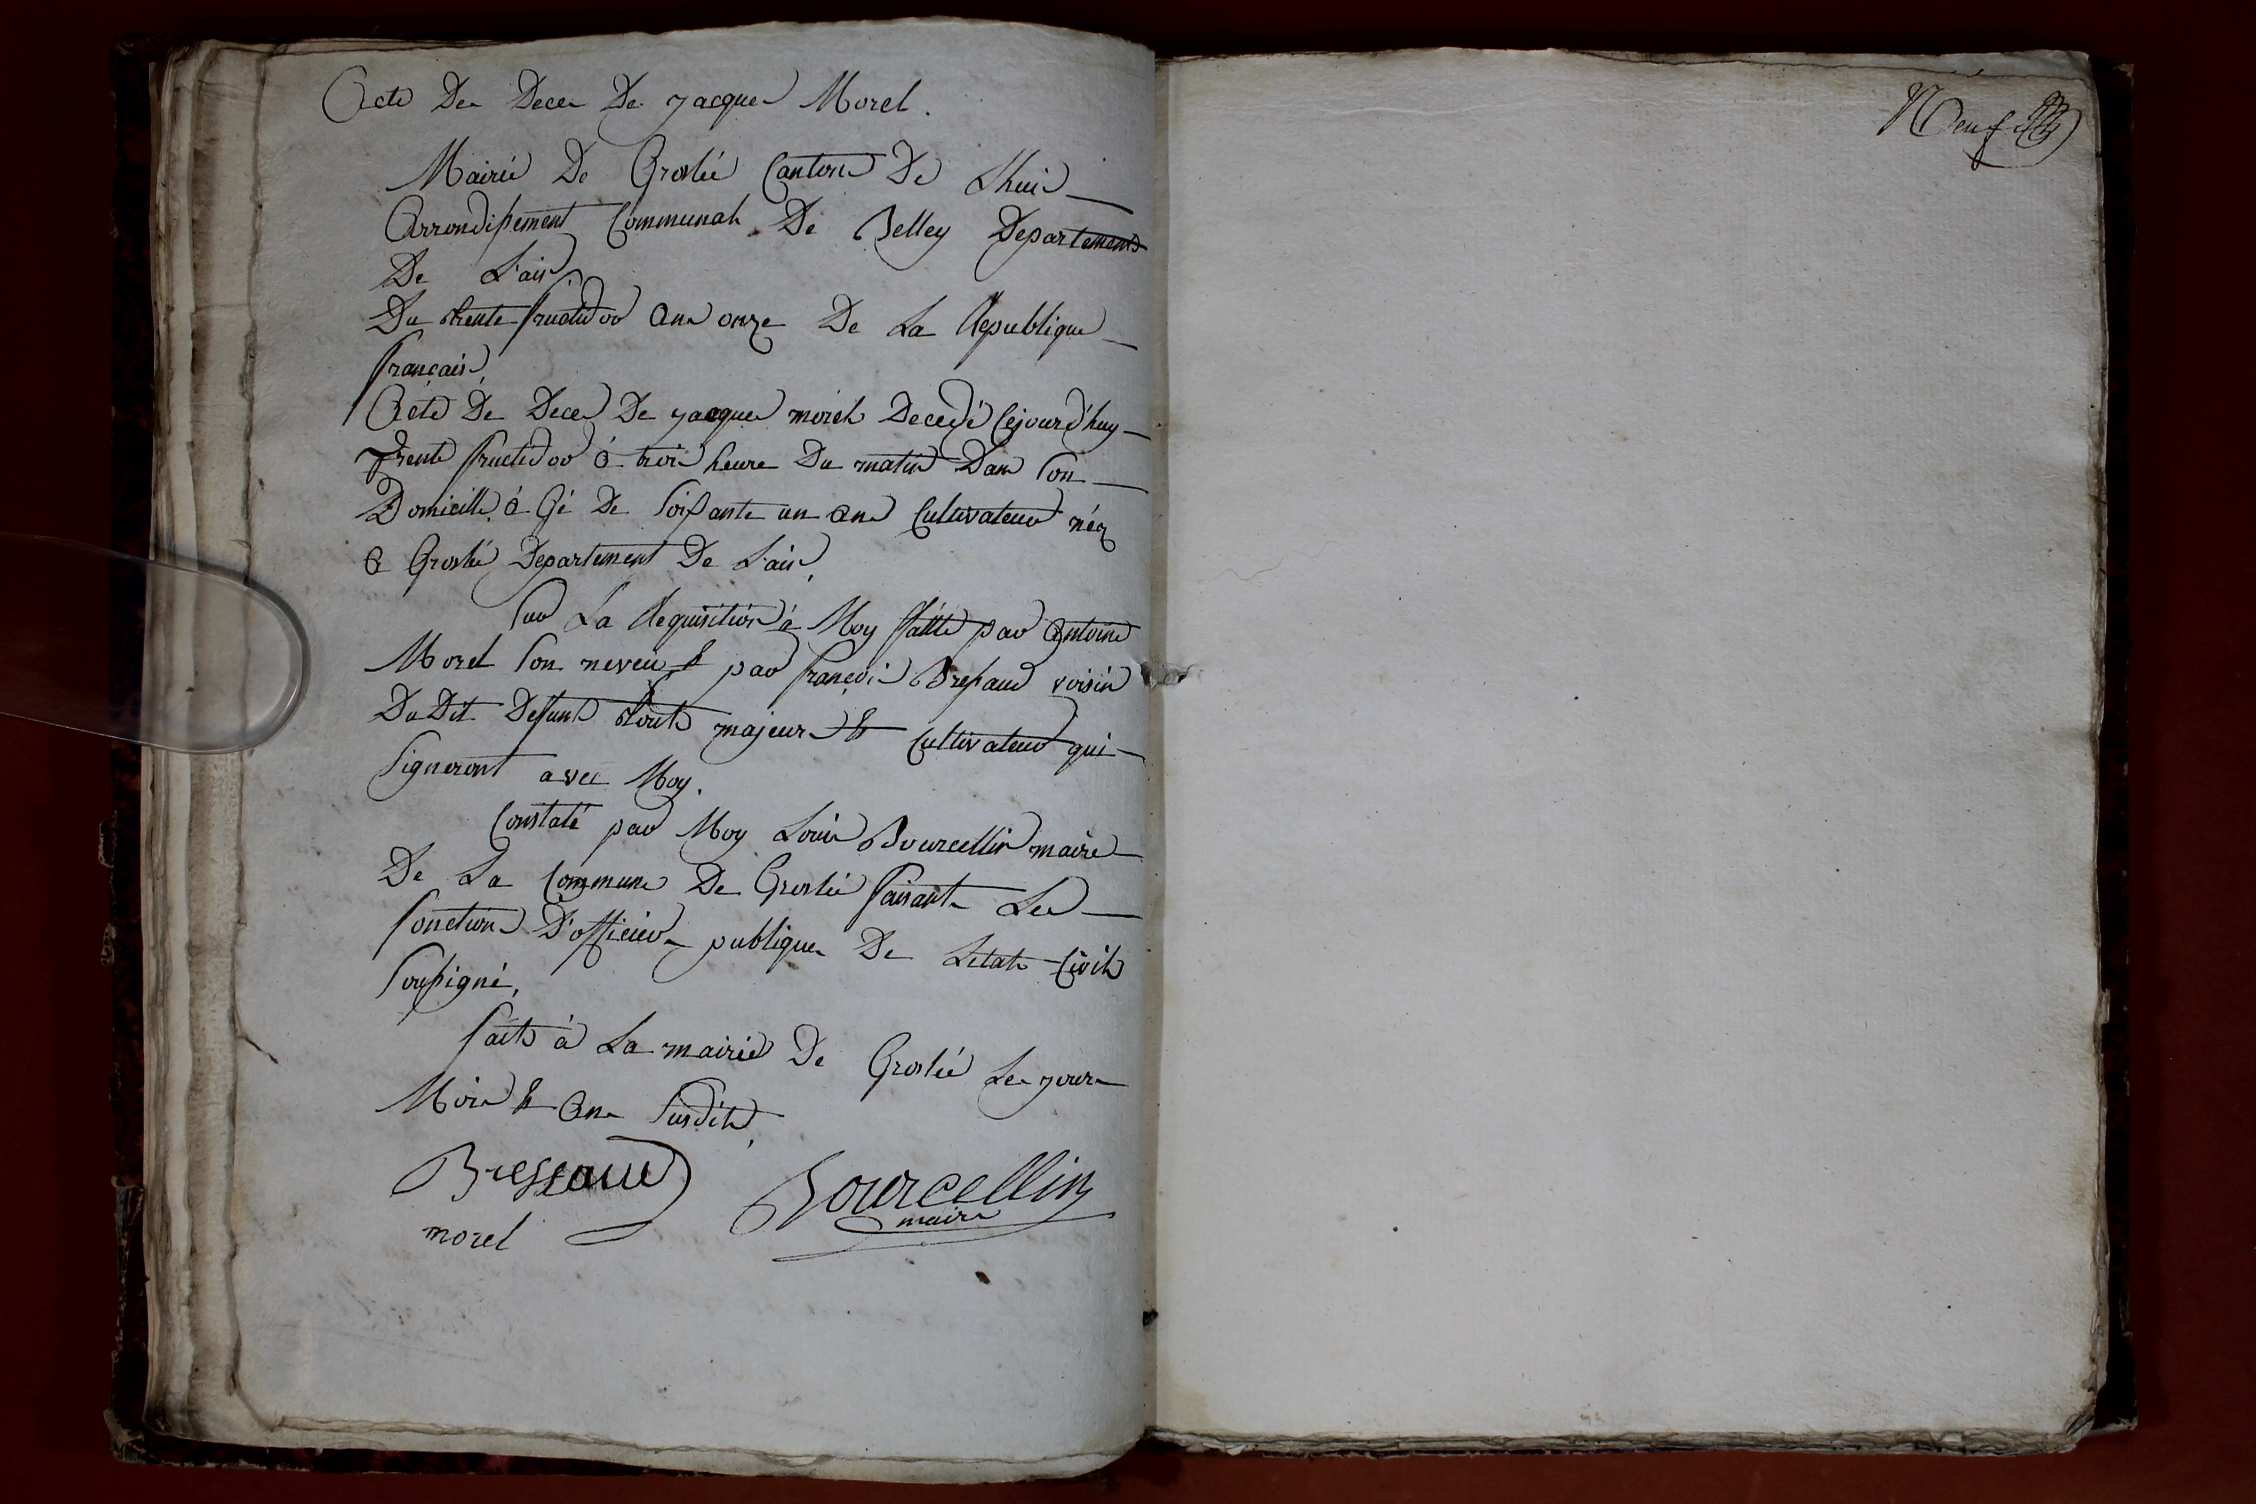 Acte De Deces De jacques Morel.
Mairie De Groslée Canton De Lhuis
Arrondissement Communal De Belley Departement
De L'ain
Du trente fructidor an onze De La Republique
français,
Acte De Deces De jacques morel Decedé Cejourd'huy
trente fructidor à trois heure Du matin Dans Son
Domicille, agé De Soissante un ans Cultivateur né
a Groslée Departement De L'ain,
Sur La Requisition à Moy faitte par antoine
Morel Son neveu & par françois Bressaud voisin
Du Dit Defunt touts majeurs & Cultivateur qui
Signeront avec Moy.
Constaté par Moy Louis Bourcellin maire
De La Commune De Groslée faisant Les
fonctions D'officier publique De Letat Civil
Soussigné,
fait à La mairie De Groslée Les jour
Mois & an Susdit,
Bressaud
Bourcellin
maire
morel
Neuf